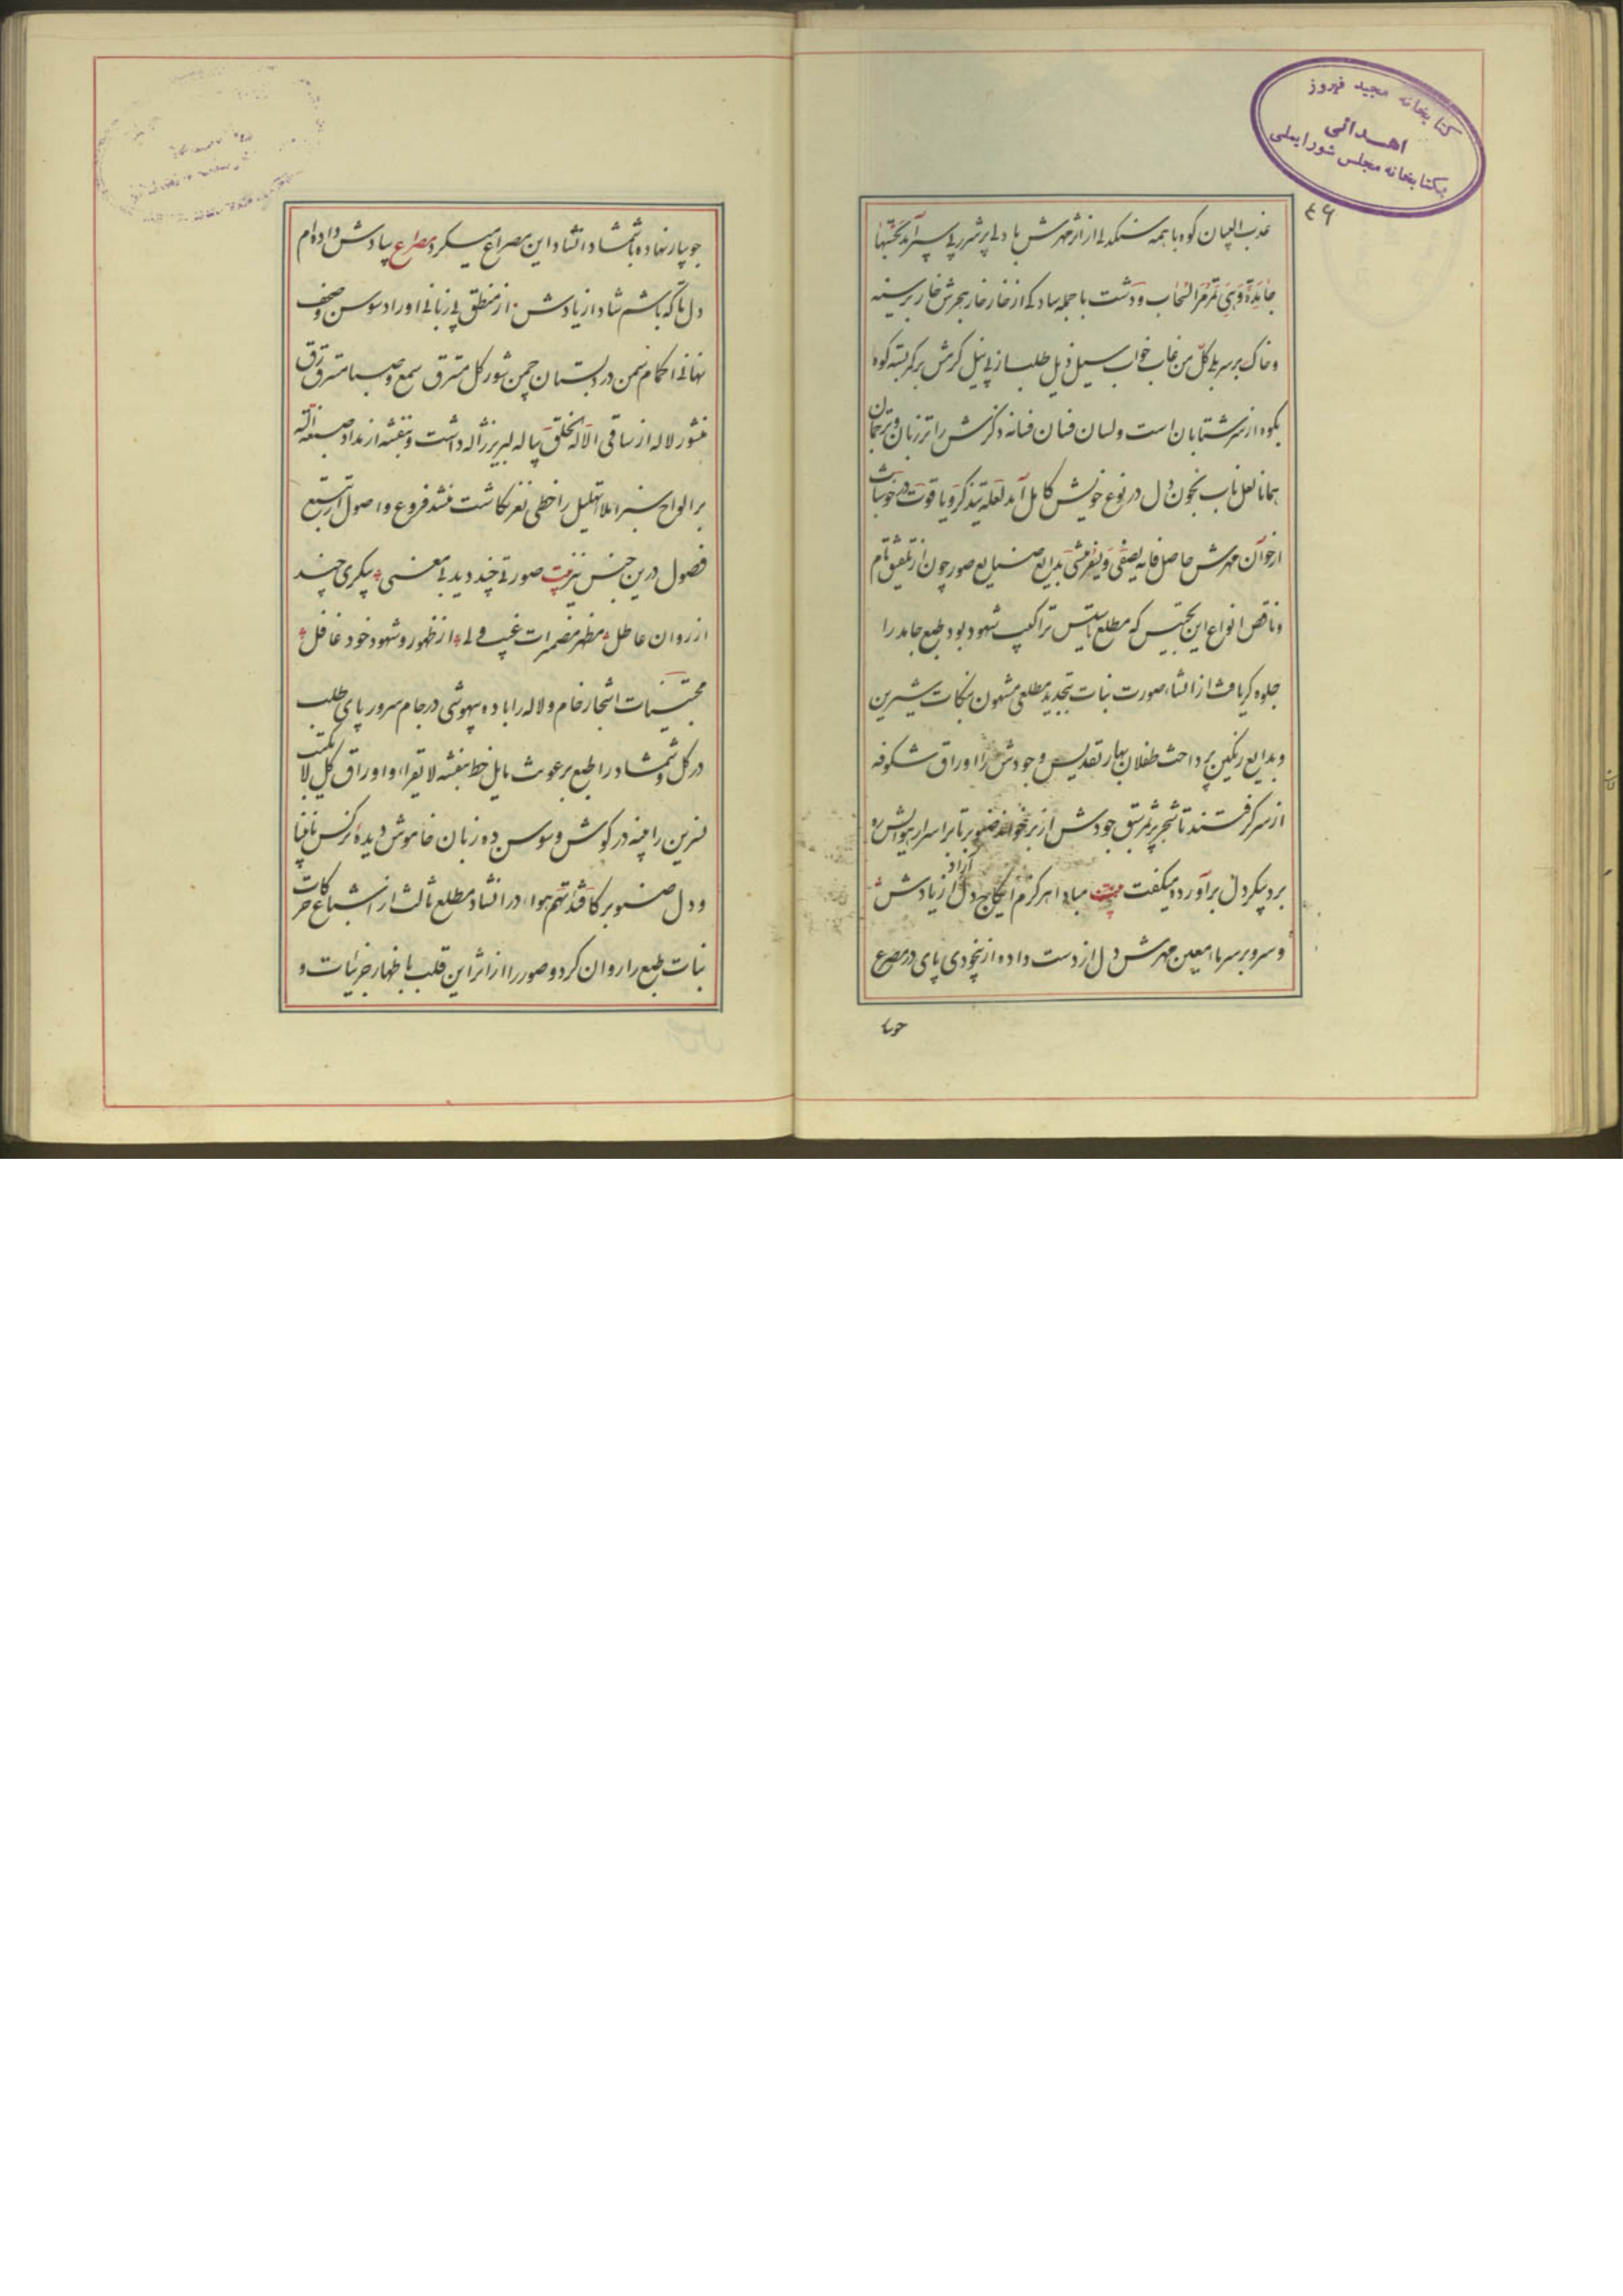 کتابخانه مجید فیروز
اهدائی
بکتابخانه مجلس شورایملی
۴۶
عذب البیان کوه با همه سنکدلی از اثر مهرش با دلی پر شرر پی سپر آمد تحسبها
جامدة وهی تمر مر السحاب و دشت با جمله سادکی از خار خار هجرش خار بر سینه
و خاک بر سر بلی کل من غاب خواب سیل ذیل طلب از پی نیل کرمش بر کمر بسته کوه
بکوه از سر شتابان است و لسان فسان فسانه ذکرش را تر زبان و ترجمان
همانا لعل ناب بخون دل در نوع خویش کامل آمد لعله یتذکر و یاقوت در خوشاب
از خوان مهرش حاصل فانه یصفی و یفرشی بدایع صنایع صور چون از تلفیق تام
و ناقص انواع این تجنیس که مطلع تاسیس تراکیب شهود بود طبع جامد را
جلوه کر یافت از انشاء صورت نبات بتجدید مطلعی مشهون بنکات شیرین
و بدایع رنکین پرداخت طفلان بهار تقدیس وجودش را اوراق شکوفه
از سر کرفتند تا شجر پر ثمر سبق جودش از بر خواند صنوبر تا بر اسرار هوایش ره
برد پیکر دل برآورد و میکفت بیت مبادا هرکزم ایکاج دل آزاد از یادش
و سرو بر سر ما معین مهرش دل از دست داده از بیخودی پای در مصرع
جویبار
جویبار نهاده با شمشاد انشاد این مصراع میکرد مصراع بیادش داده‌ام
دل تا که باشم شاد از یادش از منطق بی زبانی اوراد سوسن و صحف
نهانی اکمام سمن در دبستان چمن شور کل مسترق سمع و صبا مسترق رق
منشور لاله از ساقی الا له الخلق پیاله لبریز ژاله داشت و بنفشه از مداد صبغه الله
بر الواح سبز املاء تهلیل را خطی نغز نکاشت نشد فروع و اصول از تتبع
فصول درین جنس نیز بیت صورتی چند دید بی معنی پیکری چند
از روان عاطل مظهر مضمرات غیب ولی از ظهور و شهود خود غافل
مجتنیات اشجار خام و لاله را باده بیهوشی در جام سرور پای طلب
در کل و شمشاد را طبع برعونت مایل خط بنفشه لا یقراء و اوراق کل لا یکتب
نسرین را پنبه در کوش و سوسن ده زبان خاموش دیده نرکس نابینا
و دل صنوبر کافئدتهم هواء در انشاد مطلع ثالث از اشباع حرکات
نبات طبع را روان کرد و صور را از اثر این قلب باظهار جزئیات و